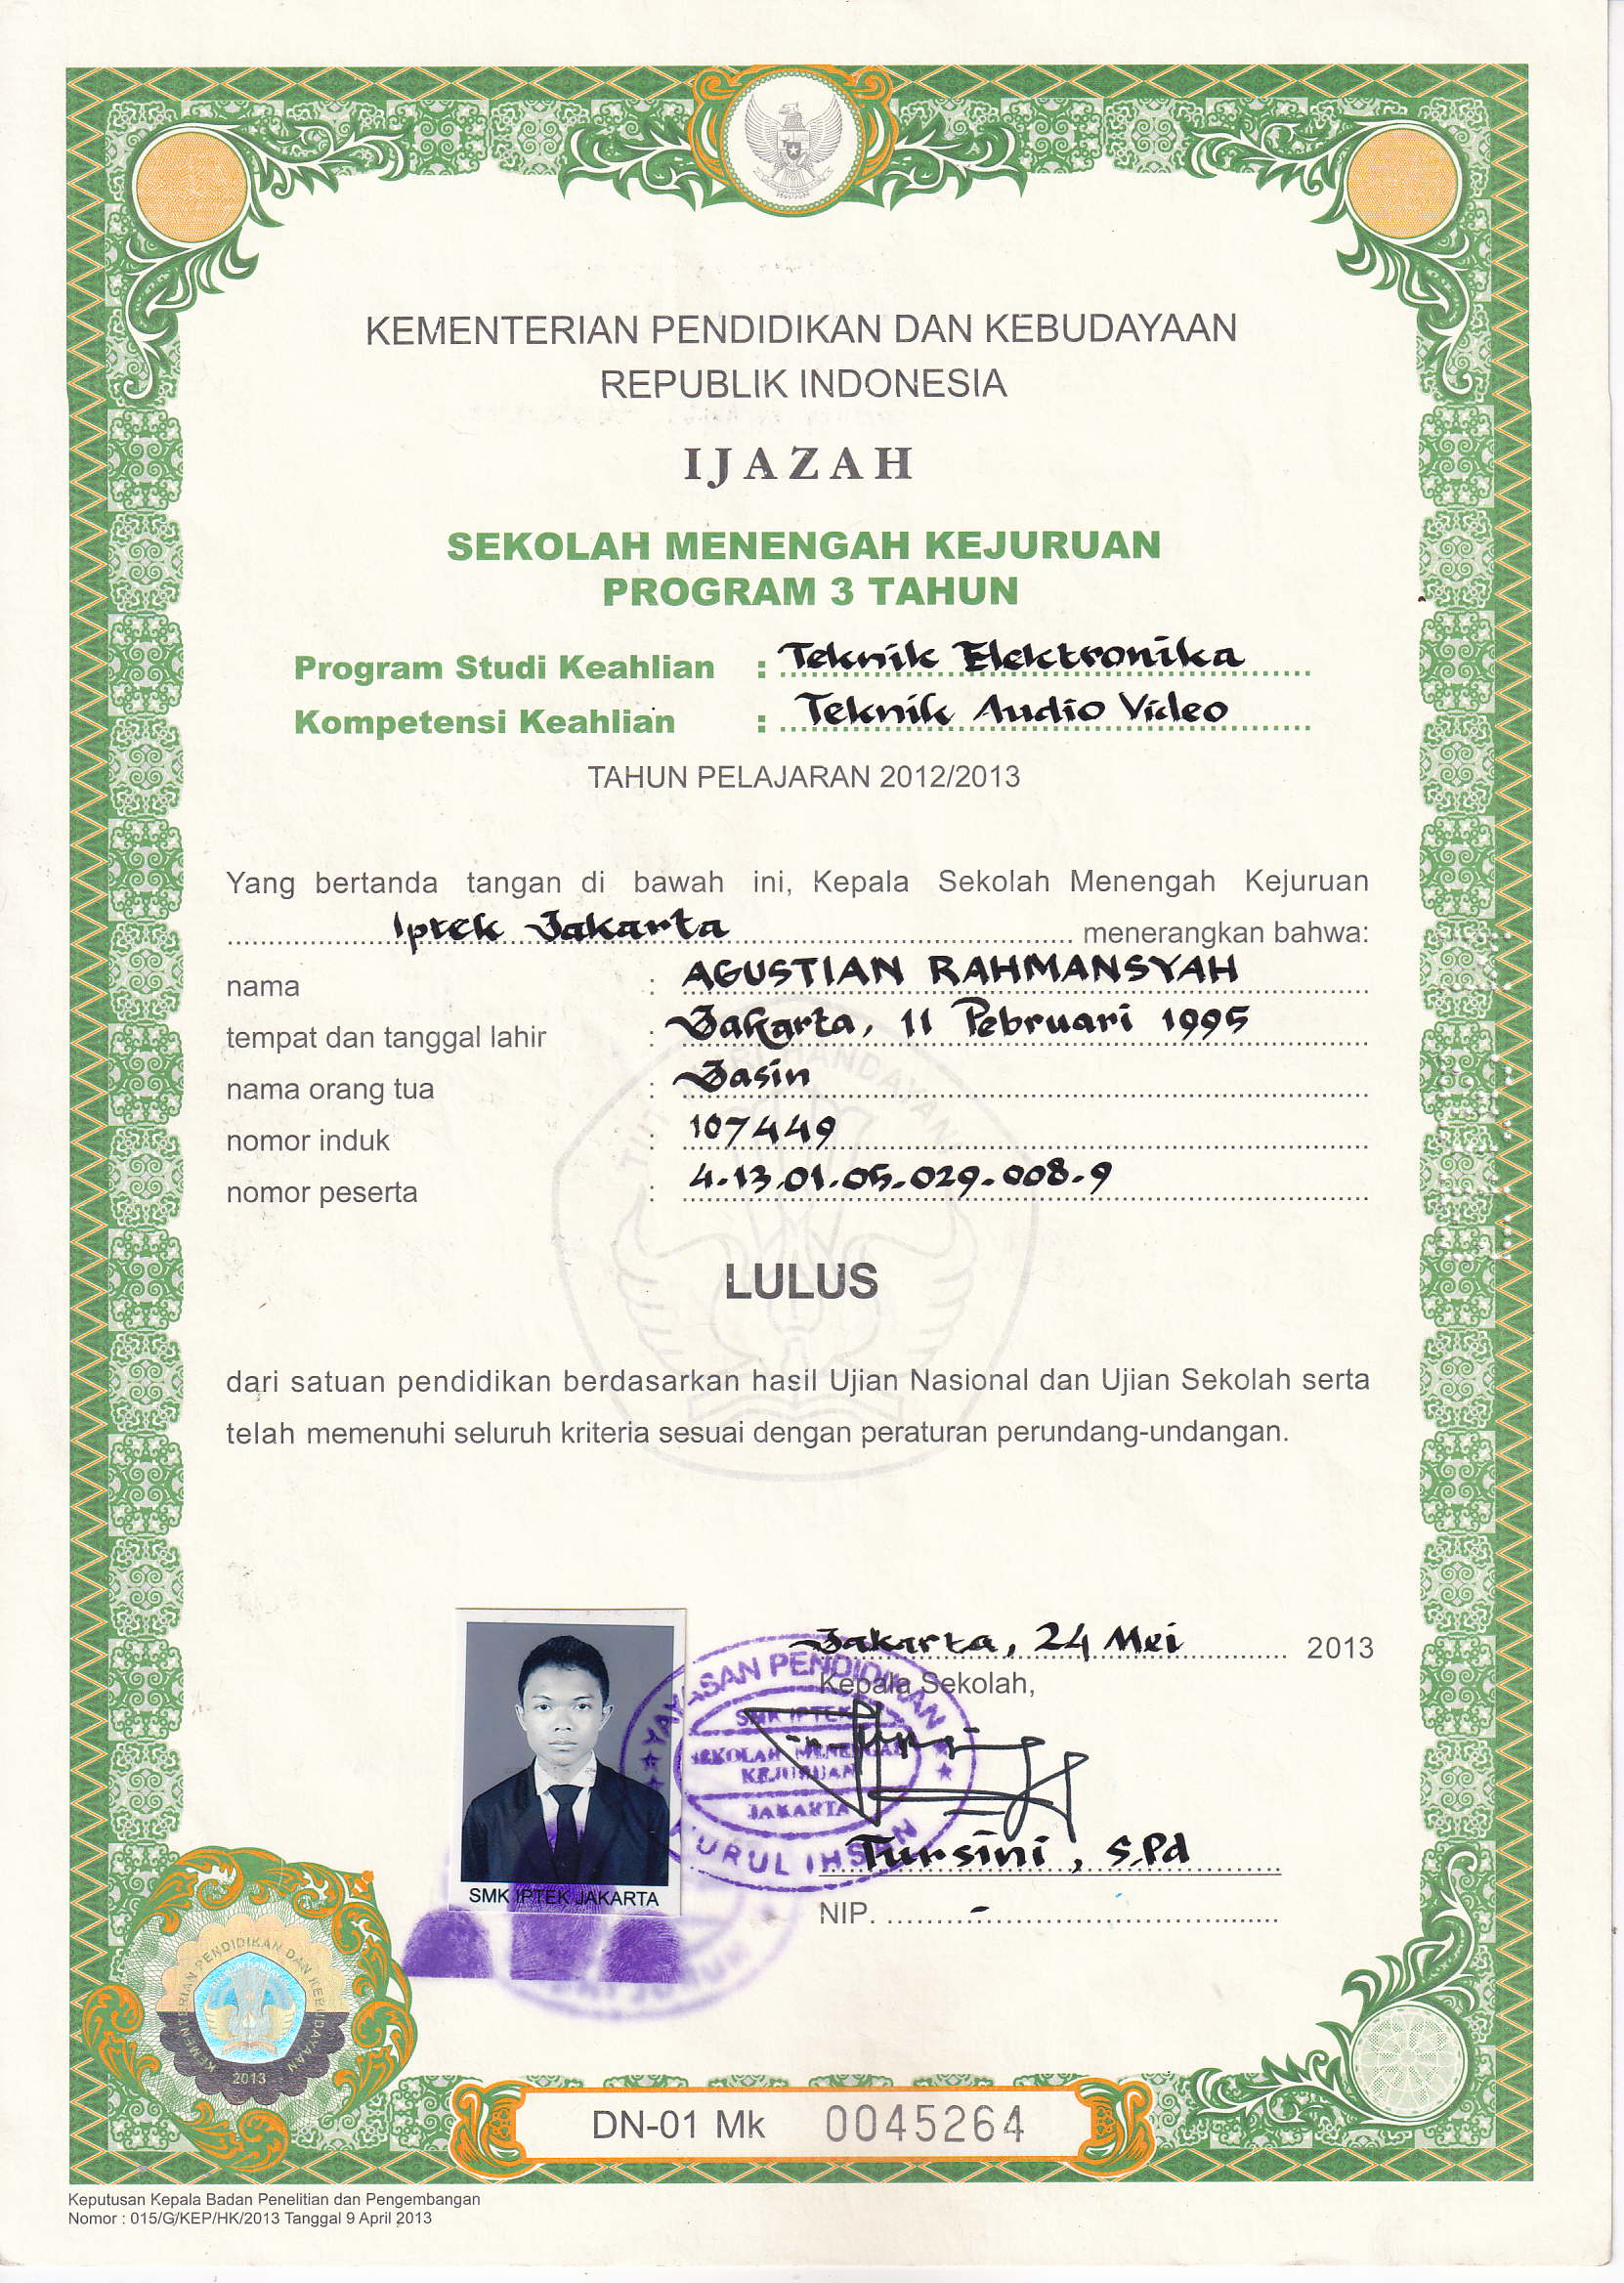 KEMENTERIAN PENDIDIKAN DAN KEBUDAYAAN
REPUBLIK INDONESIA
IJAZAH
SEKOLAH MENENGAH KEJURUAN
PROGRAM 3 TAHUN
Program Studi Keahlian : Teknik Elektronika
Kompetensi Keahlian : Teknik Audio Video
TAHUN PELAJARAN 2012/2013
Yang bertanda tangan di bawah ini, Kepala Sekolah Menengah Kejuruan
Iptek Jakarta menerangkan bahwa:
nama : AGUSTIAN RAHMANSYAH
tempat dan tanggal lahir : Jakarta, 11 Pebruari 1995
nama orang tua : Jasin
nomor induk : 107449
nomor peserta : 4-13.01.05-029-008-9
LULUS
dari satuan pendidikan berdasarkan hasil Ujian Nasional dan Ujian Sekolah serta
telah memenuhi seluruh kriteria sesuai dengan peraturan perundang-undangan.
Jakarta, 24 Mei 2013
Kepala Sekolah,
YAYASAN PENDIDIKAN
SMK IPTEK
SEKOLAH MENENGAH
KEJURUAN
JAKARTA
NURUL IHSAN
Tursini, S.Pd
NIP. -
SMK IPTEK JAKARTA
KEMENTERIAN PENDIDIKAN DAN KEBUDAYAAN
2013
DN-01 Mk 0045264
Keputusan Kepala Badan Penelitian dan Pengembangan
Nomor : 015/G/KEP/HK/2013 Tanggal 9 April 2013